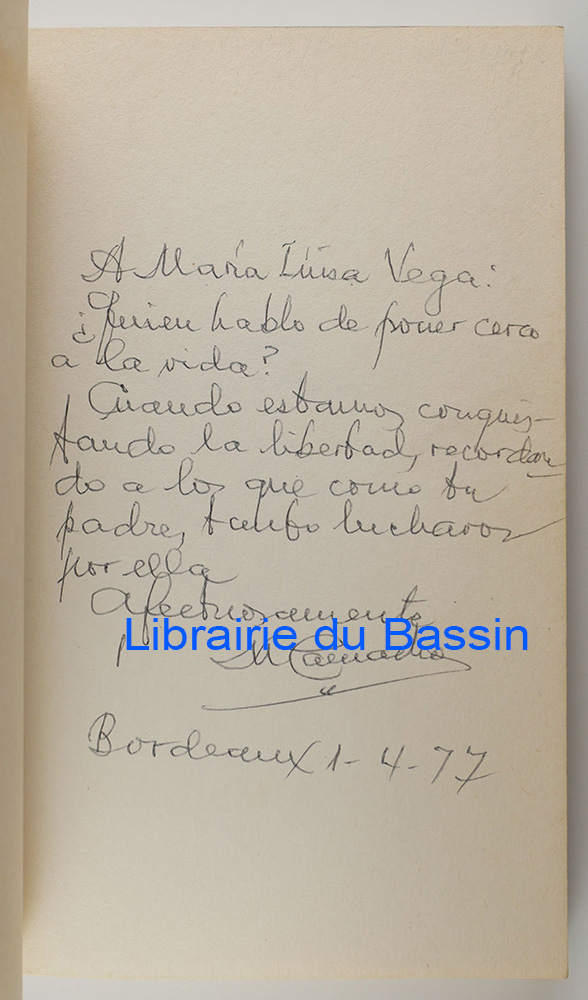 A María Luisa Vega:
¿Quien hablo de poner cerco
a la vida?
Cuando estamos conquis-
tando la libertad, recordan
do a los que como tu
padre, tanto lucharon
por ella
Afectuosamente
Librairie du Bassin
Bordeaux 1-4-77